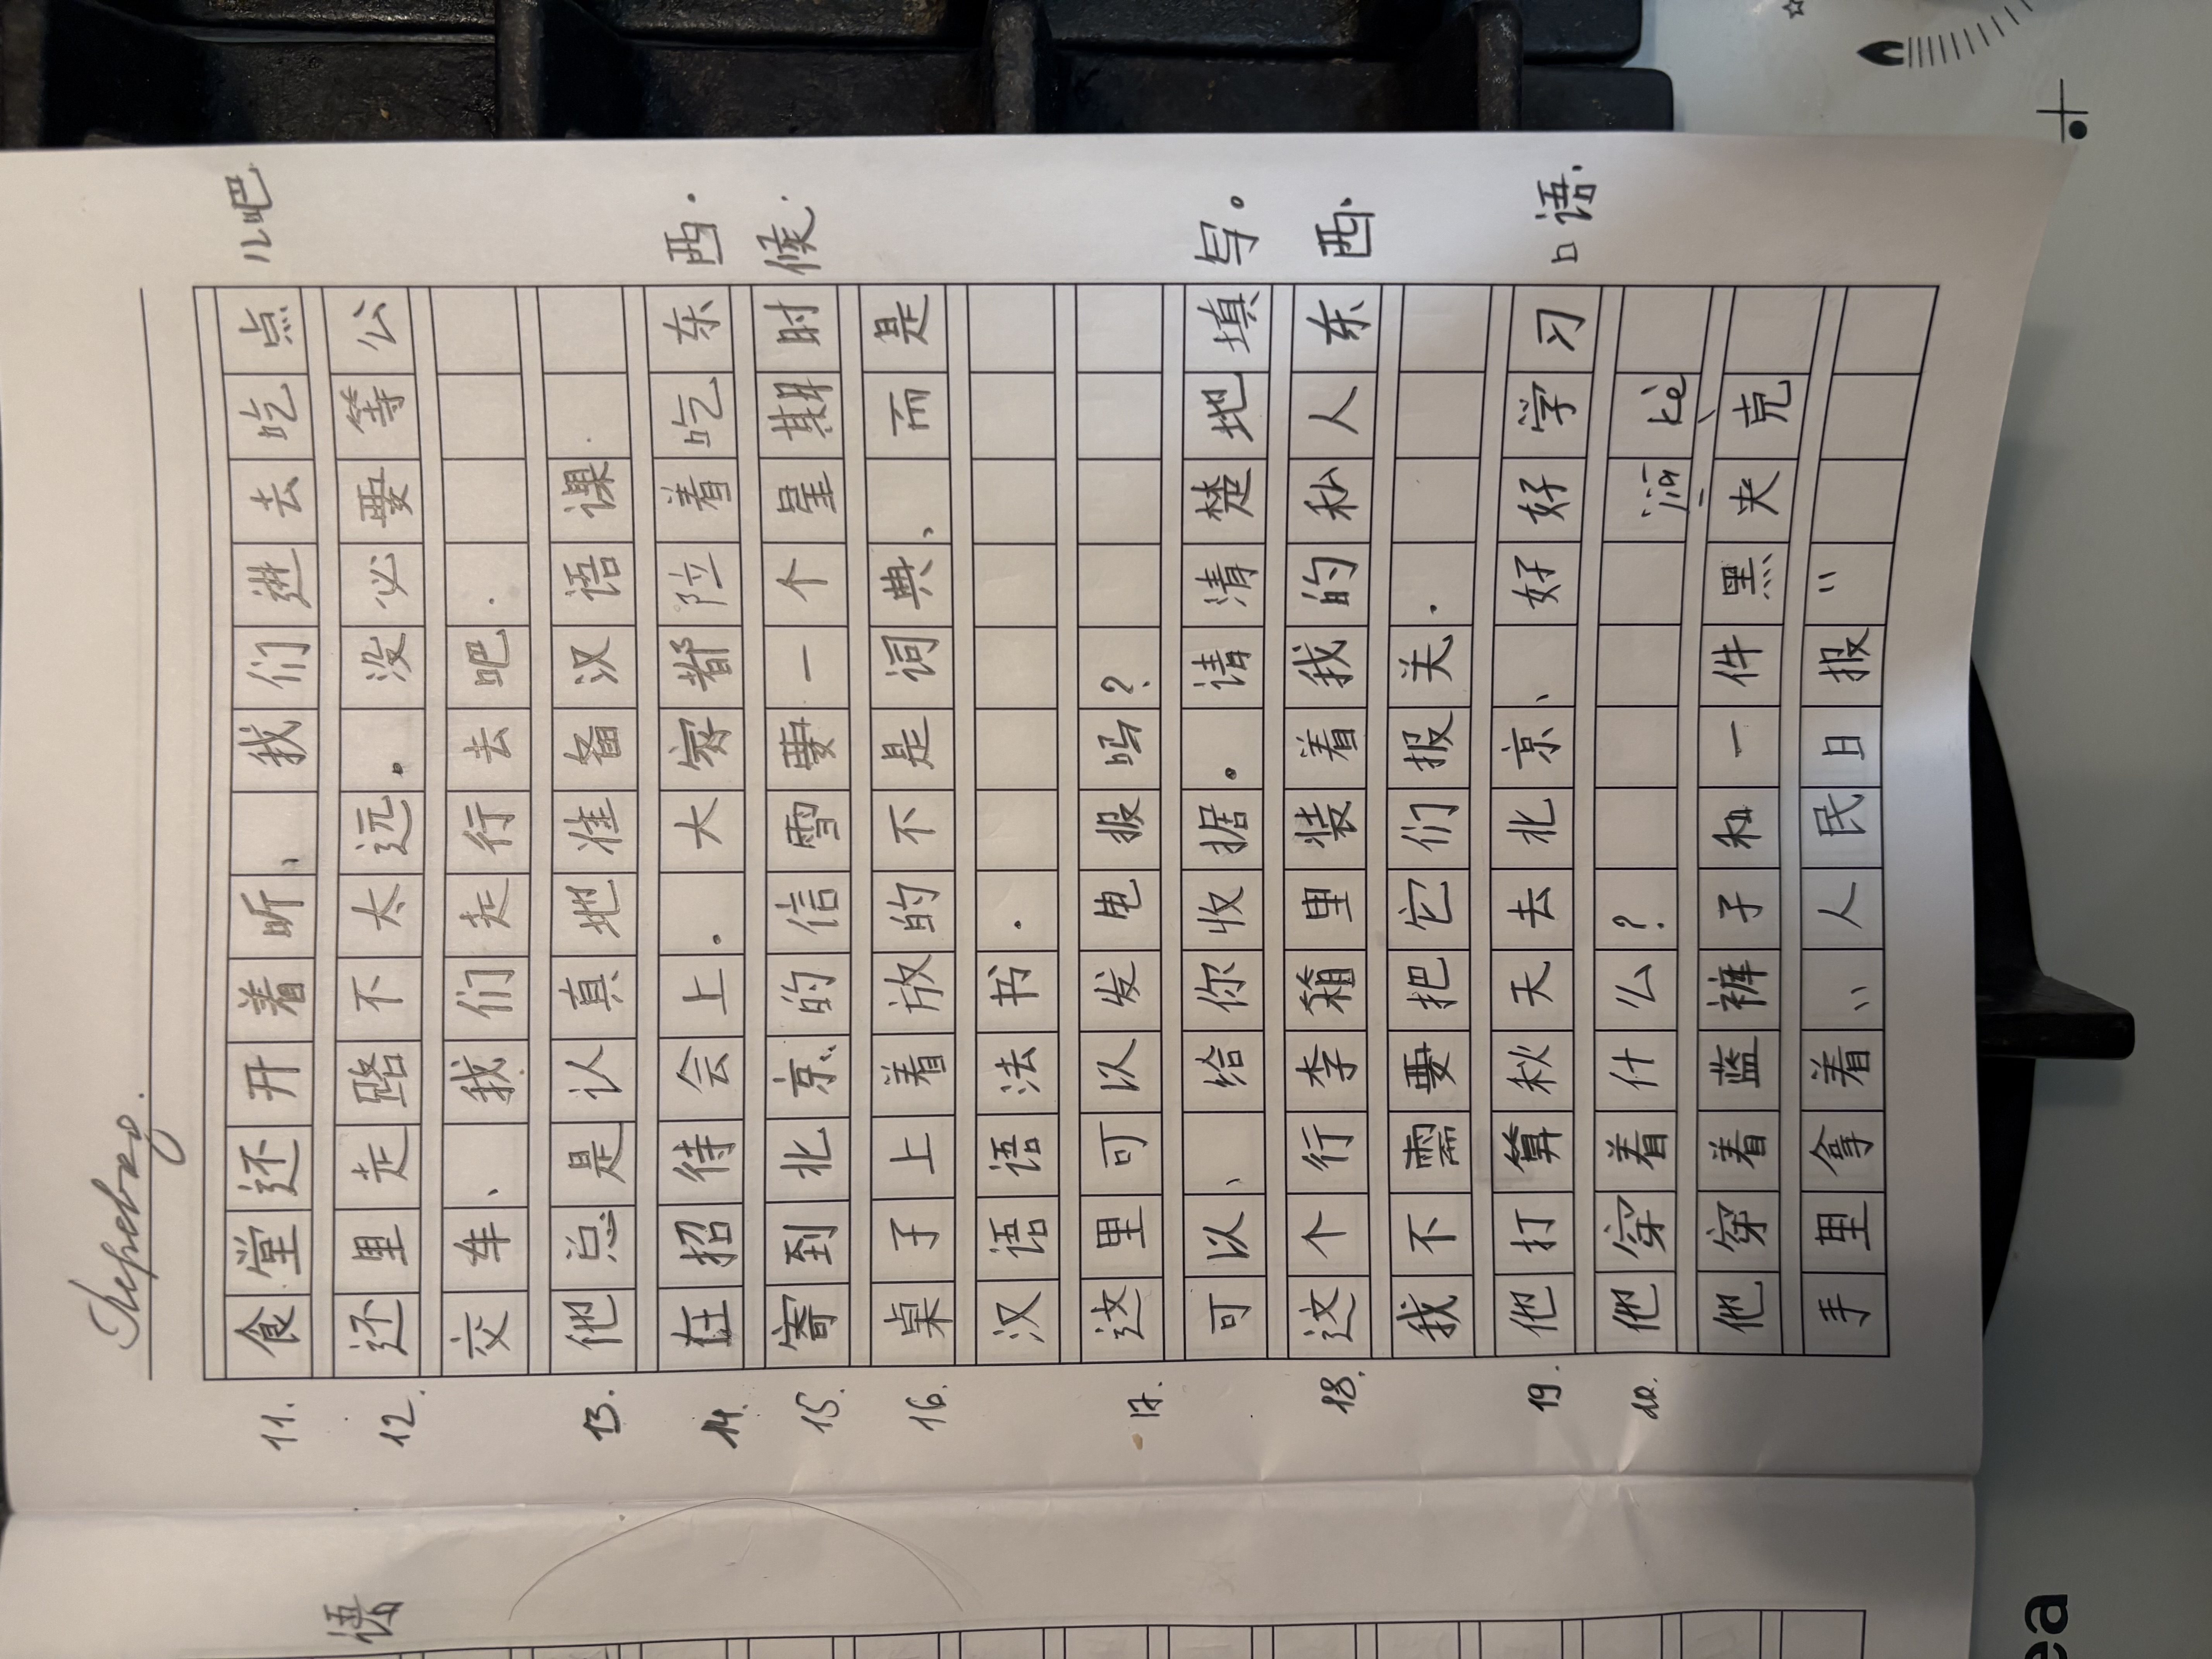 语
Перевод.
11. 食堂还开着听、我们进去吃点儿吧.
12. 还里走路不太远。没必要等公
交车、我们走行去吧.
13. 他总是认真地准备汉语课.
14. 在招待会上。大家都阾着吃东西.
15. 寄到北京的信雪要一个星期时候.
16. 桌子上着放的不是词典、而是
汉语语法书.
17. 这里可以发电报吗?
可以、给你收据。请清楚地填写。
18. 这个行李箱里装着我的私人东西.
我不需要把它们报关.
19. 他打算秋天去北京、好好学习口语.
20. 他穿着什么?
jiā kè
他穿着蓝裤子和一件黑夹克
手里拿着"人民日报"
ea